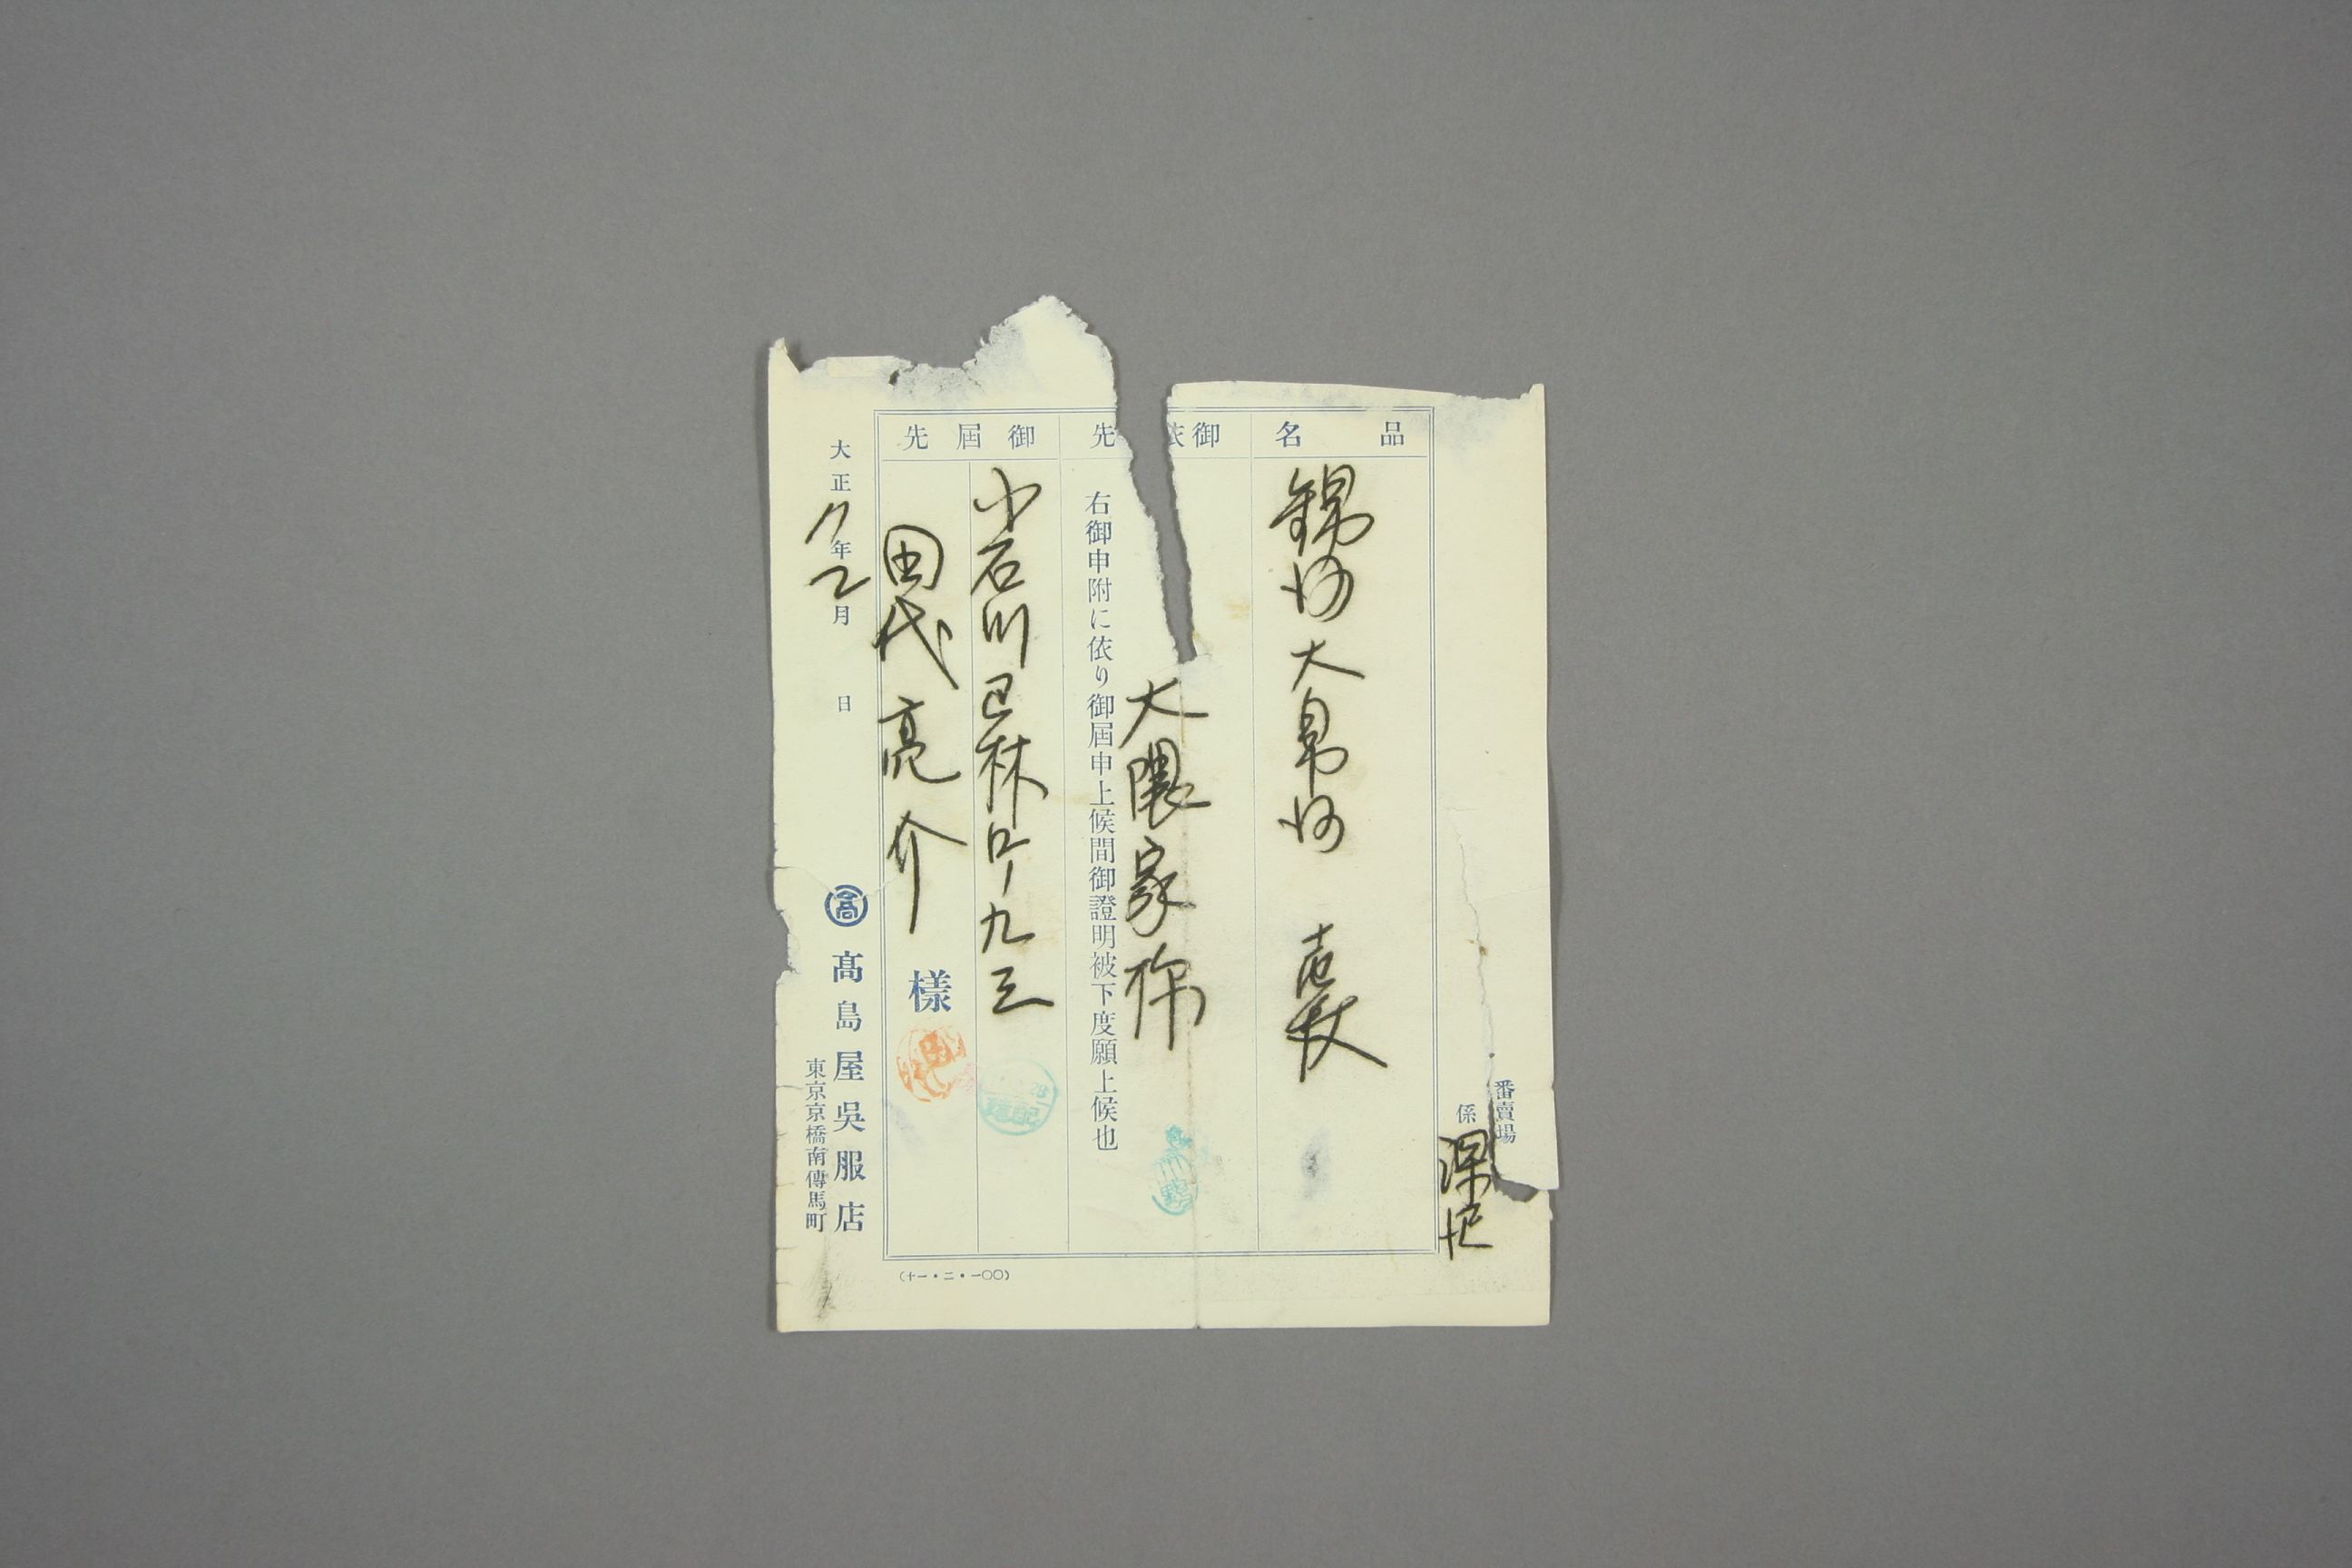 番賣場
係
品名
錦紗大帛紗 壱枚
御依 先
大隈家
右御申附に依り御屆申上候間御證明被下度願上候也
御屆先
小石川
九三
田代亮介 樣
大正11年2月 日
髙島屋吳服店
東京京橋南傳馬町
(十一・二・一〇〇)